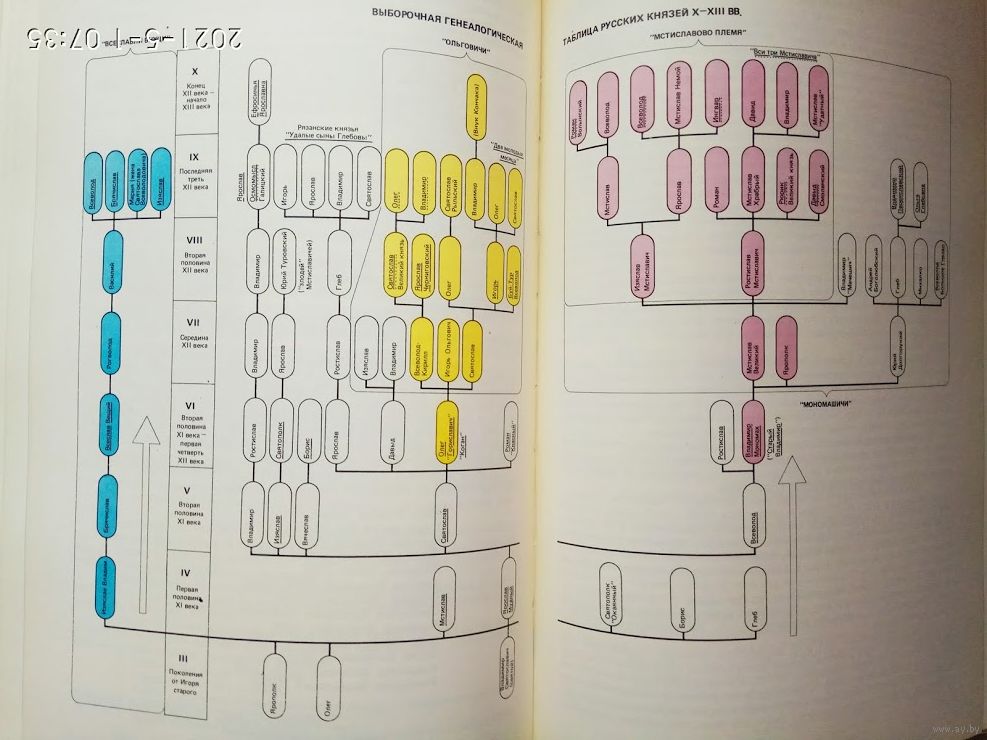 ВЫБОРОЧНАЯ ГЕНЕАЛОГИЧЕСКАЯ ТАБЛИЦА РУССКИХ КНЯЗЕЙ X–XIII ВВ.
2021-5-1 07:35
"ОЛЬГОВИЧИ"
"МСТИСЛАВОВО ПЛЕМЯ"
"Вси три Мстиславича"
X
Конец
XII века –
начало
XIII века
Ефросинья
Ярославна
(Внук Кончака)
Роман
Волынский
Всеволод
Всеволод
Мстислав Немой
Ингвар
Давид
Владимир
Мстислав
"Удатный"
Рязанские князья
"Удалые сыны Глебовы"
"Два молодых
месяца"
IX
Последняя
треть
XII века
Всеволод
Брячислав
Мария (жена
Святослава
Всеволодовича)
Изяслав
Ярослав
Осмомысл
Галицкий
Игорь
Ярослав
Владимир
Святослав
Олег
Владимир
Святослав
Рыльский
Владимир
Олег
Святослав
Мстислав
Ярослав
Роман
Мстислав
Храбрый
Рюрик
Великий князь
Давыд
Смоленский
Владимир
Переяславский
Ольга
Глебовна
VIII
Вторая
половина
XII века
Василий
Владимир
Юрий Туровский
("злодей"
Мстиславичей)
Глеб
Святослав
Великий князь
Ярослав
Черниговский
Олег
Игорь
Буй Тур
Всеволод
Изяслав
Мстиславич
Ростислав
Мстиславич
Владимир
Мачешич
Андрей
Боголюбский
Глеб
Михалко
Всеволод
Большое Гнездо
VII
Середина
XII века
Рогволод
Владимир
Ярослав
Ростислав
Изяслав
Владимир
Всеволод-
Кирилл
Игорь Ольгович
Святослав
Мстислав
Великий
Ярополк
Юрий
Долгорукий
"МОНОМАШИЧИ"
VI
Вторая
половина
XI века –
первая
четверть
XII века
Всеслав Вещий
Ростислав
Святополк
Борис
Ярослав
Давыд
Олег
"Гориславич"
"Коган"
Роман
"Красный"
Ростислав
Владимир
Мономах
("Старый
Владимир")
V
Вторая
половина
XI века
Брячислав
Владимир
Изяслав
Вячеслав
Святослав
Всеволод
IV
Первая
половина
XI века
Изяслав Владим.
Мстислав
Ярослав
Мудрый
Святополк
"Окаянный"
Борис
Глеб
III
Поколения
от Игоря
старого
Ярополк
Олег
Владимир
Святославич
www.ay.by